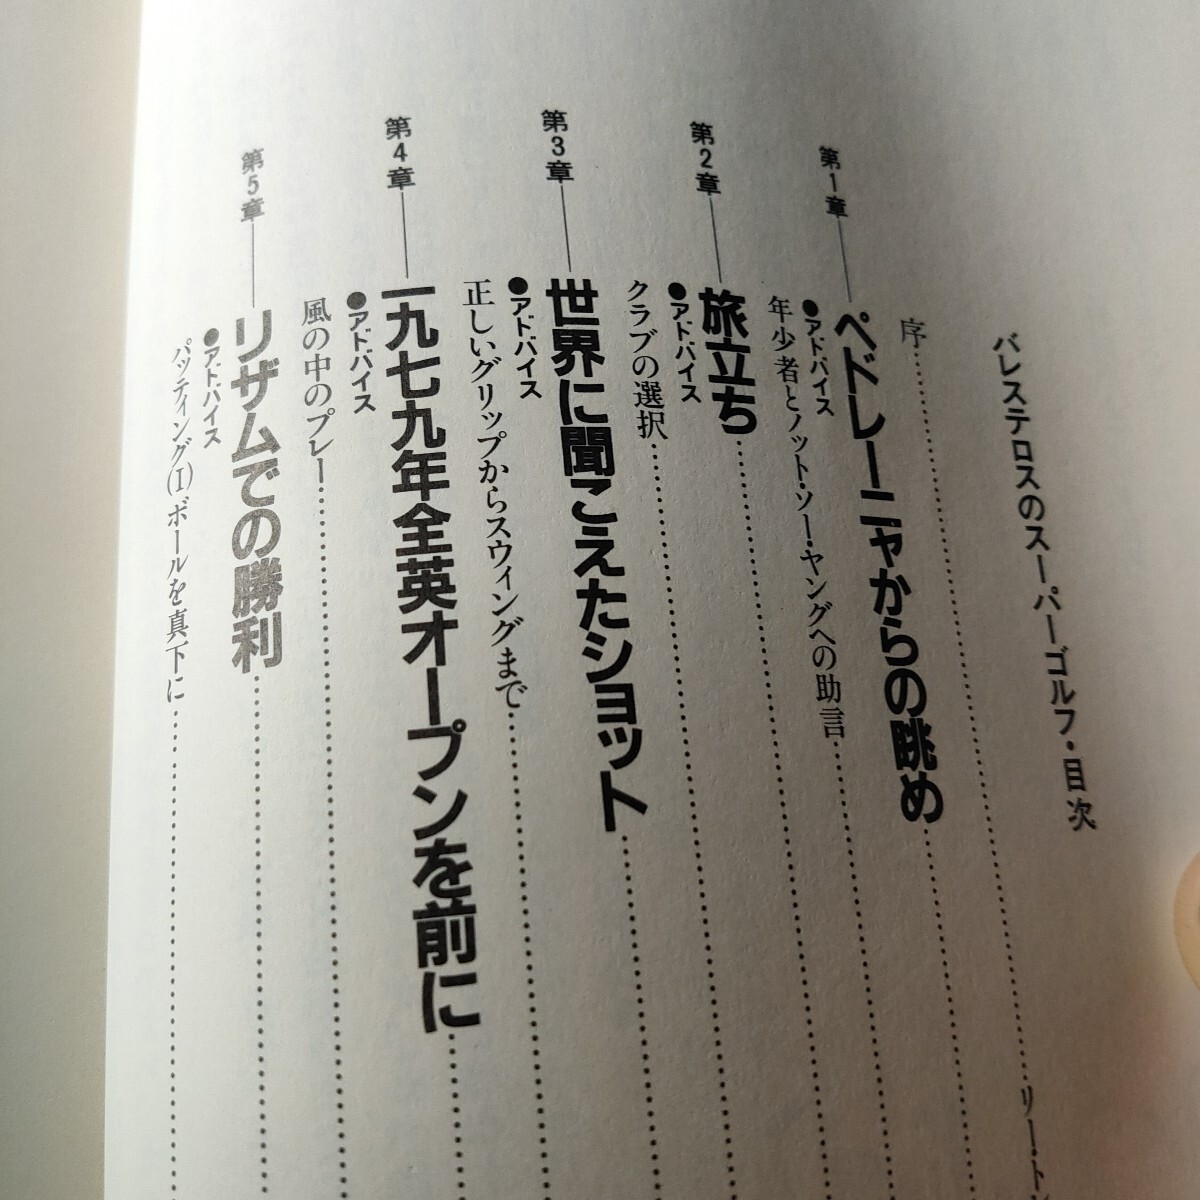 バレステロスのスーパーゴルフ・目次
序
リート
第1章 ペドレーニャからの眺め
●アドバイス
年少者とノット・ソー・ヤングへの助言
第2章 旅立ち
●アドバイス
クラブの選択
第3章 世界に聞こえたショット
●アドバイス
正しいグリップからスウィングまで
第4章 一九七九年全英オープンを前に
●アドバイス
風の中のプレー
第5章 リザムでの勝利
●アドバイス
パッティング(I)ボールを真下に